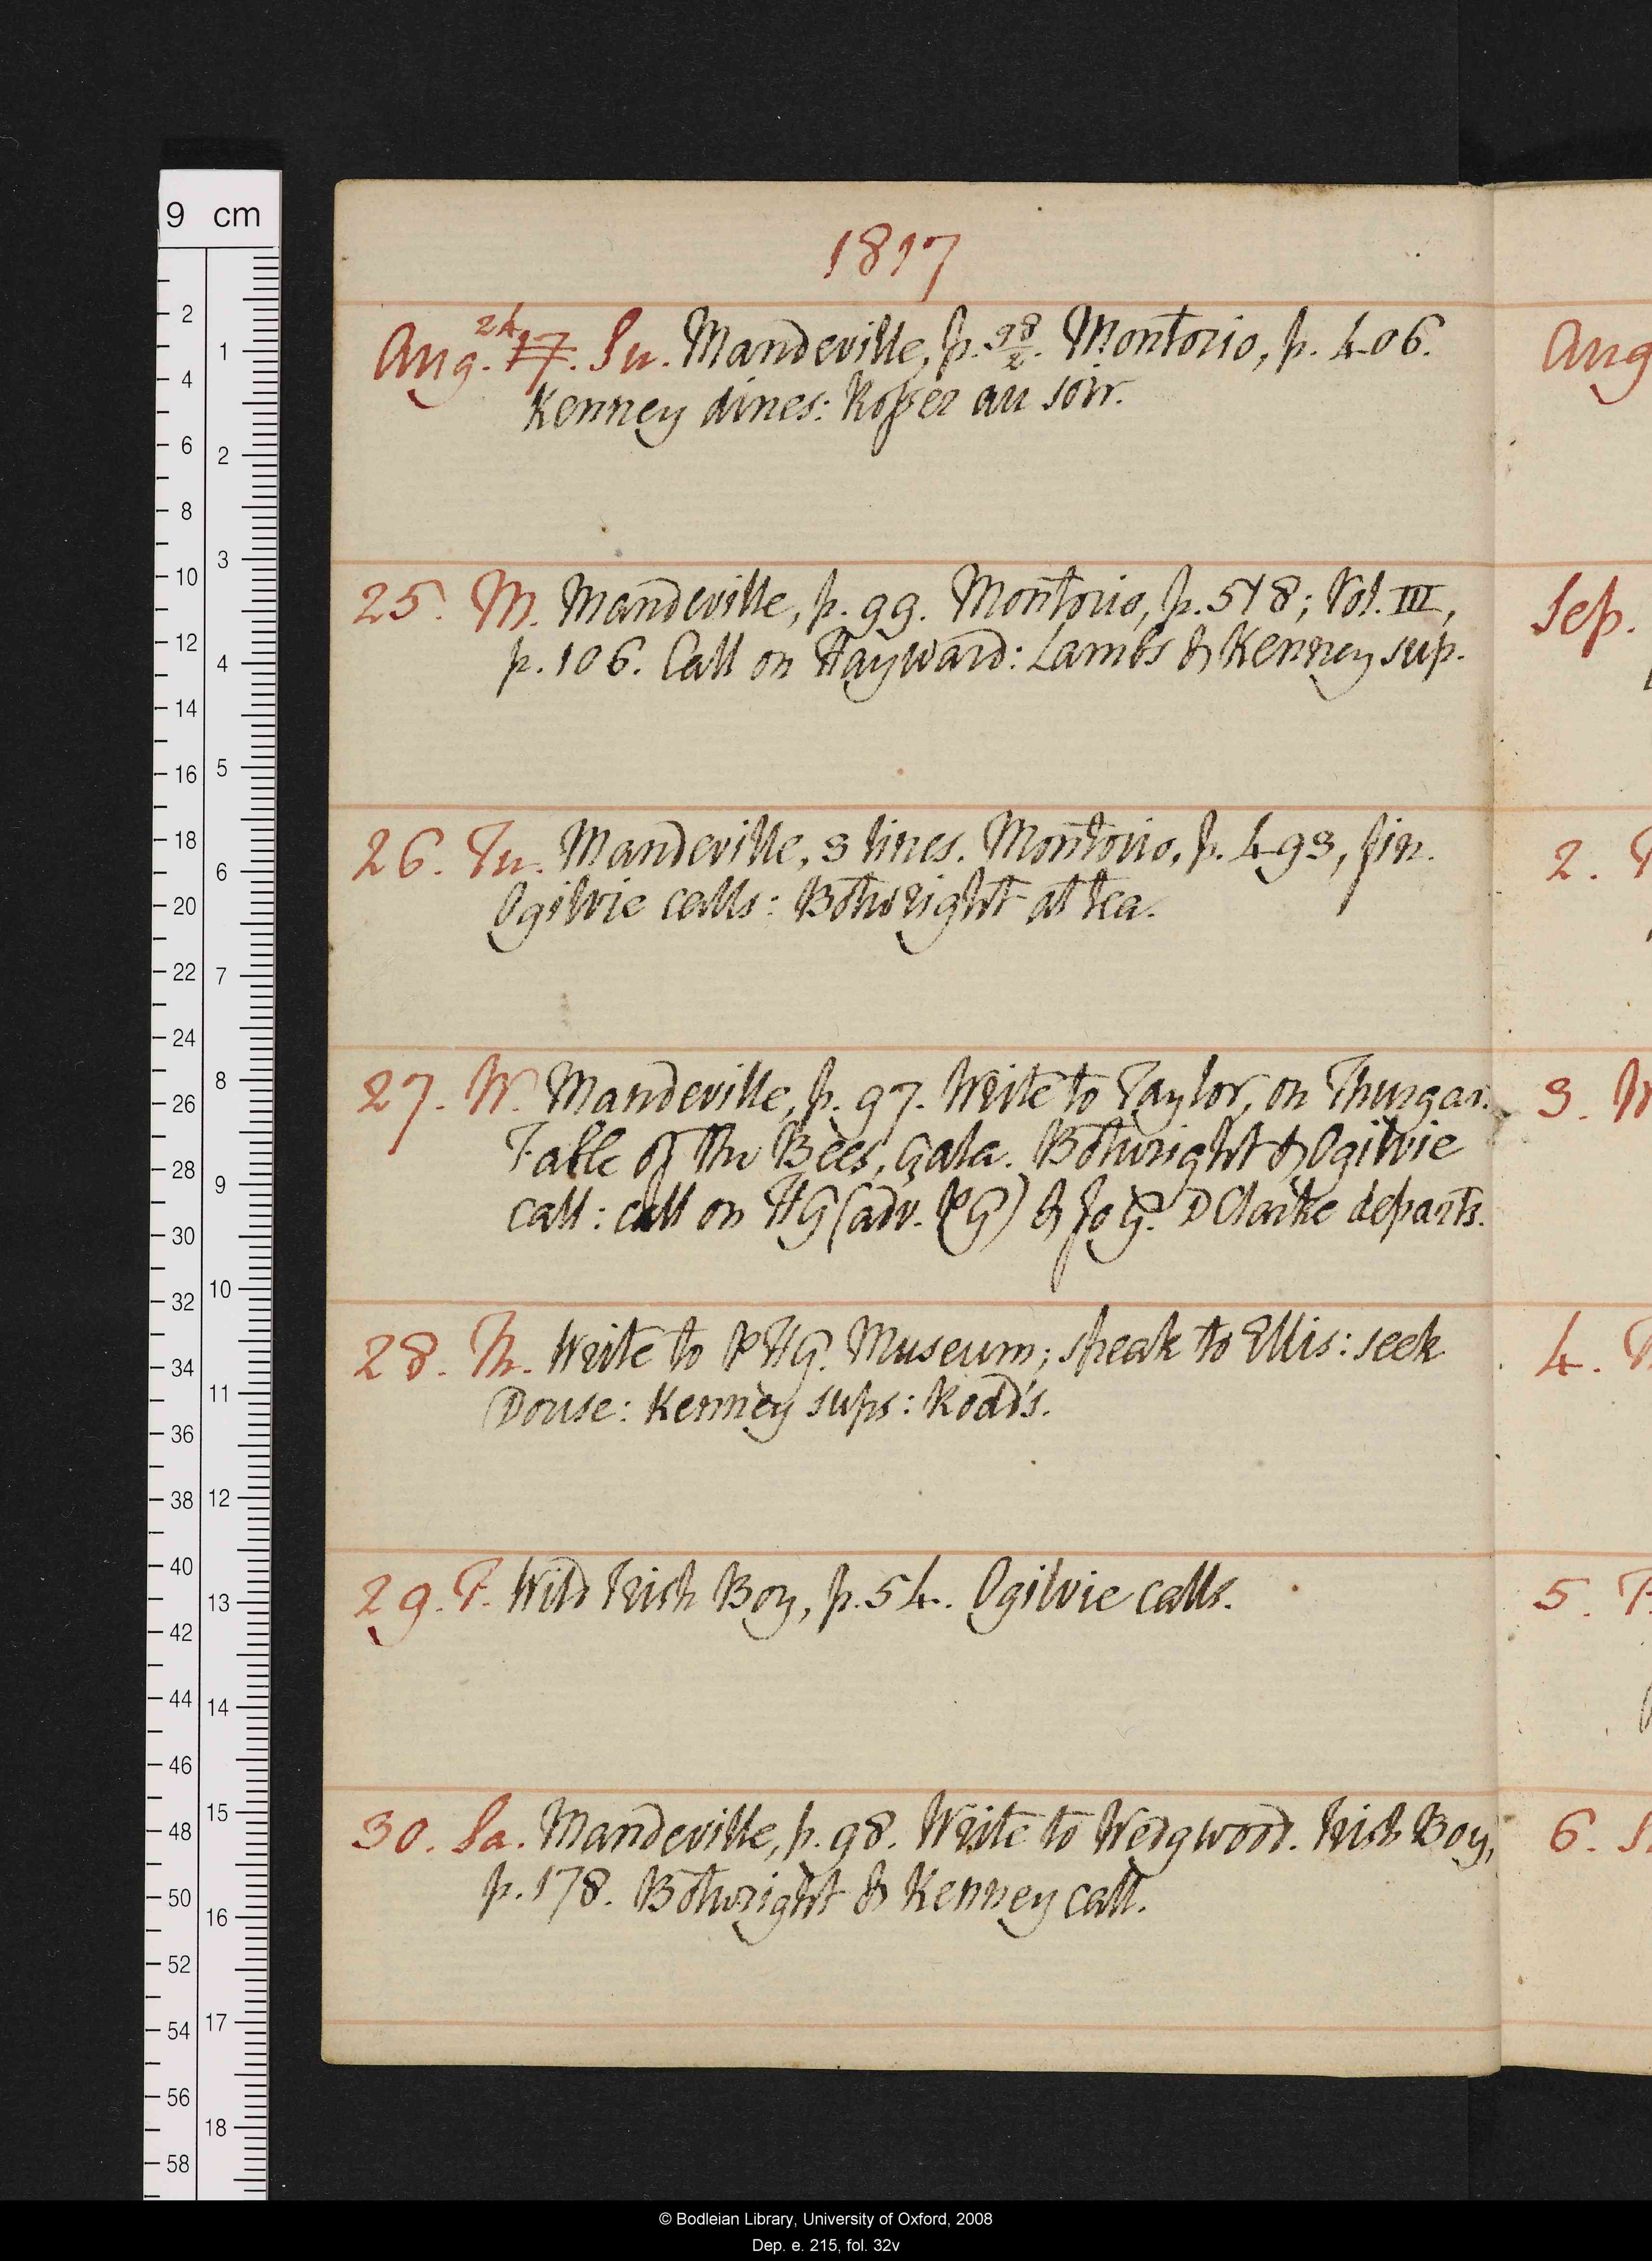 1817
Aug. 24 17. Su. Mandeville, p. 98/2. Montorio, p. 406.
Kenney dines: Rosser au soir.
25. M. Mandeville, p. 99. Montorio, p. 518; Vol. III,
p. 106. Call on Hayward: Lambs & Kenney sup.
26. Tu. Mandeville, 3 lines. Montorio, p. 493, fin.
Ogilvie calls: Botwright at tea.
27. W. Mandeville, p. 97. Write to Taylor, on Thurgar.
Fable of the Bees, çala. Botwright & Ogilvie
call: call on HG (adv. PG) & Jo G. D Clarke departs.
28. Th. Write to PHG. Museum; speak to Ellis: seek
Douse: Kenney sups: Rodd's.
29. F. Wild Irish Boy, p. 54. Ogilvie calls.
30. Sa. Mandeville, p. 98. Write to Wedgwood. Irish Boy,
p. 178. Botwright & Kenney call.
Aug
Sep.
2.
3. W
4.
5.
6.
9 cm
2
4
6
8
10
12
14
16
18
20
22
24
26
28
30
32
34
36
38
40
42
44
46
48
50
52
54
56
58
1
2
3
4
5
6
7
8
9
10
11
12
13
14
15
16
17
18
© Bodleian Library, University of Oxford, 2008
Dep. e. 215, fol. 32v